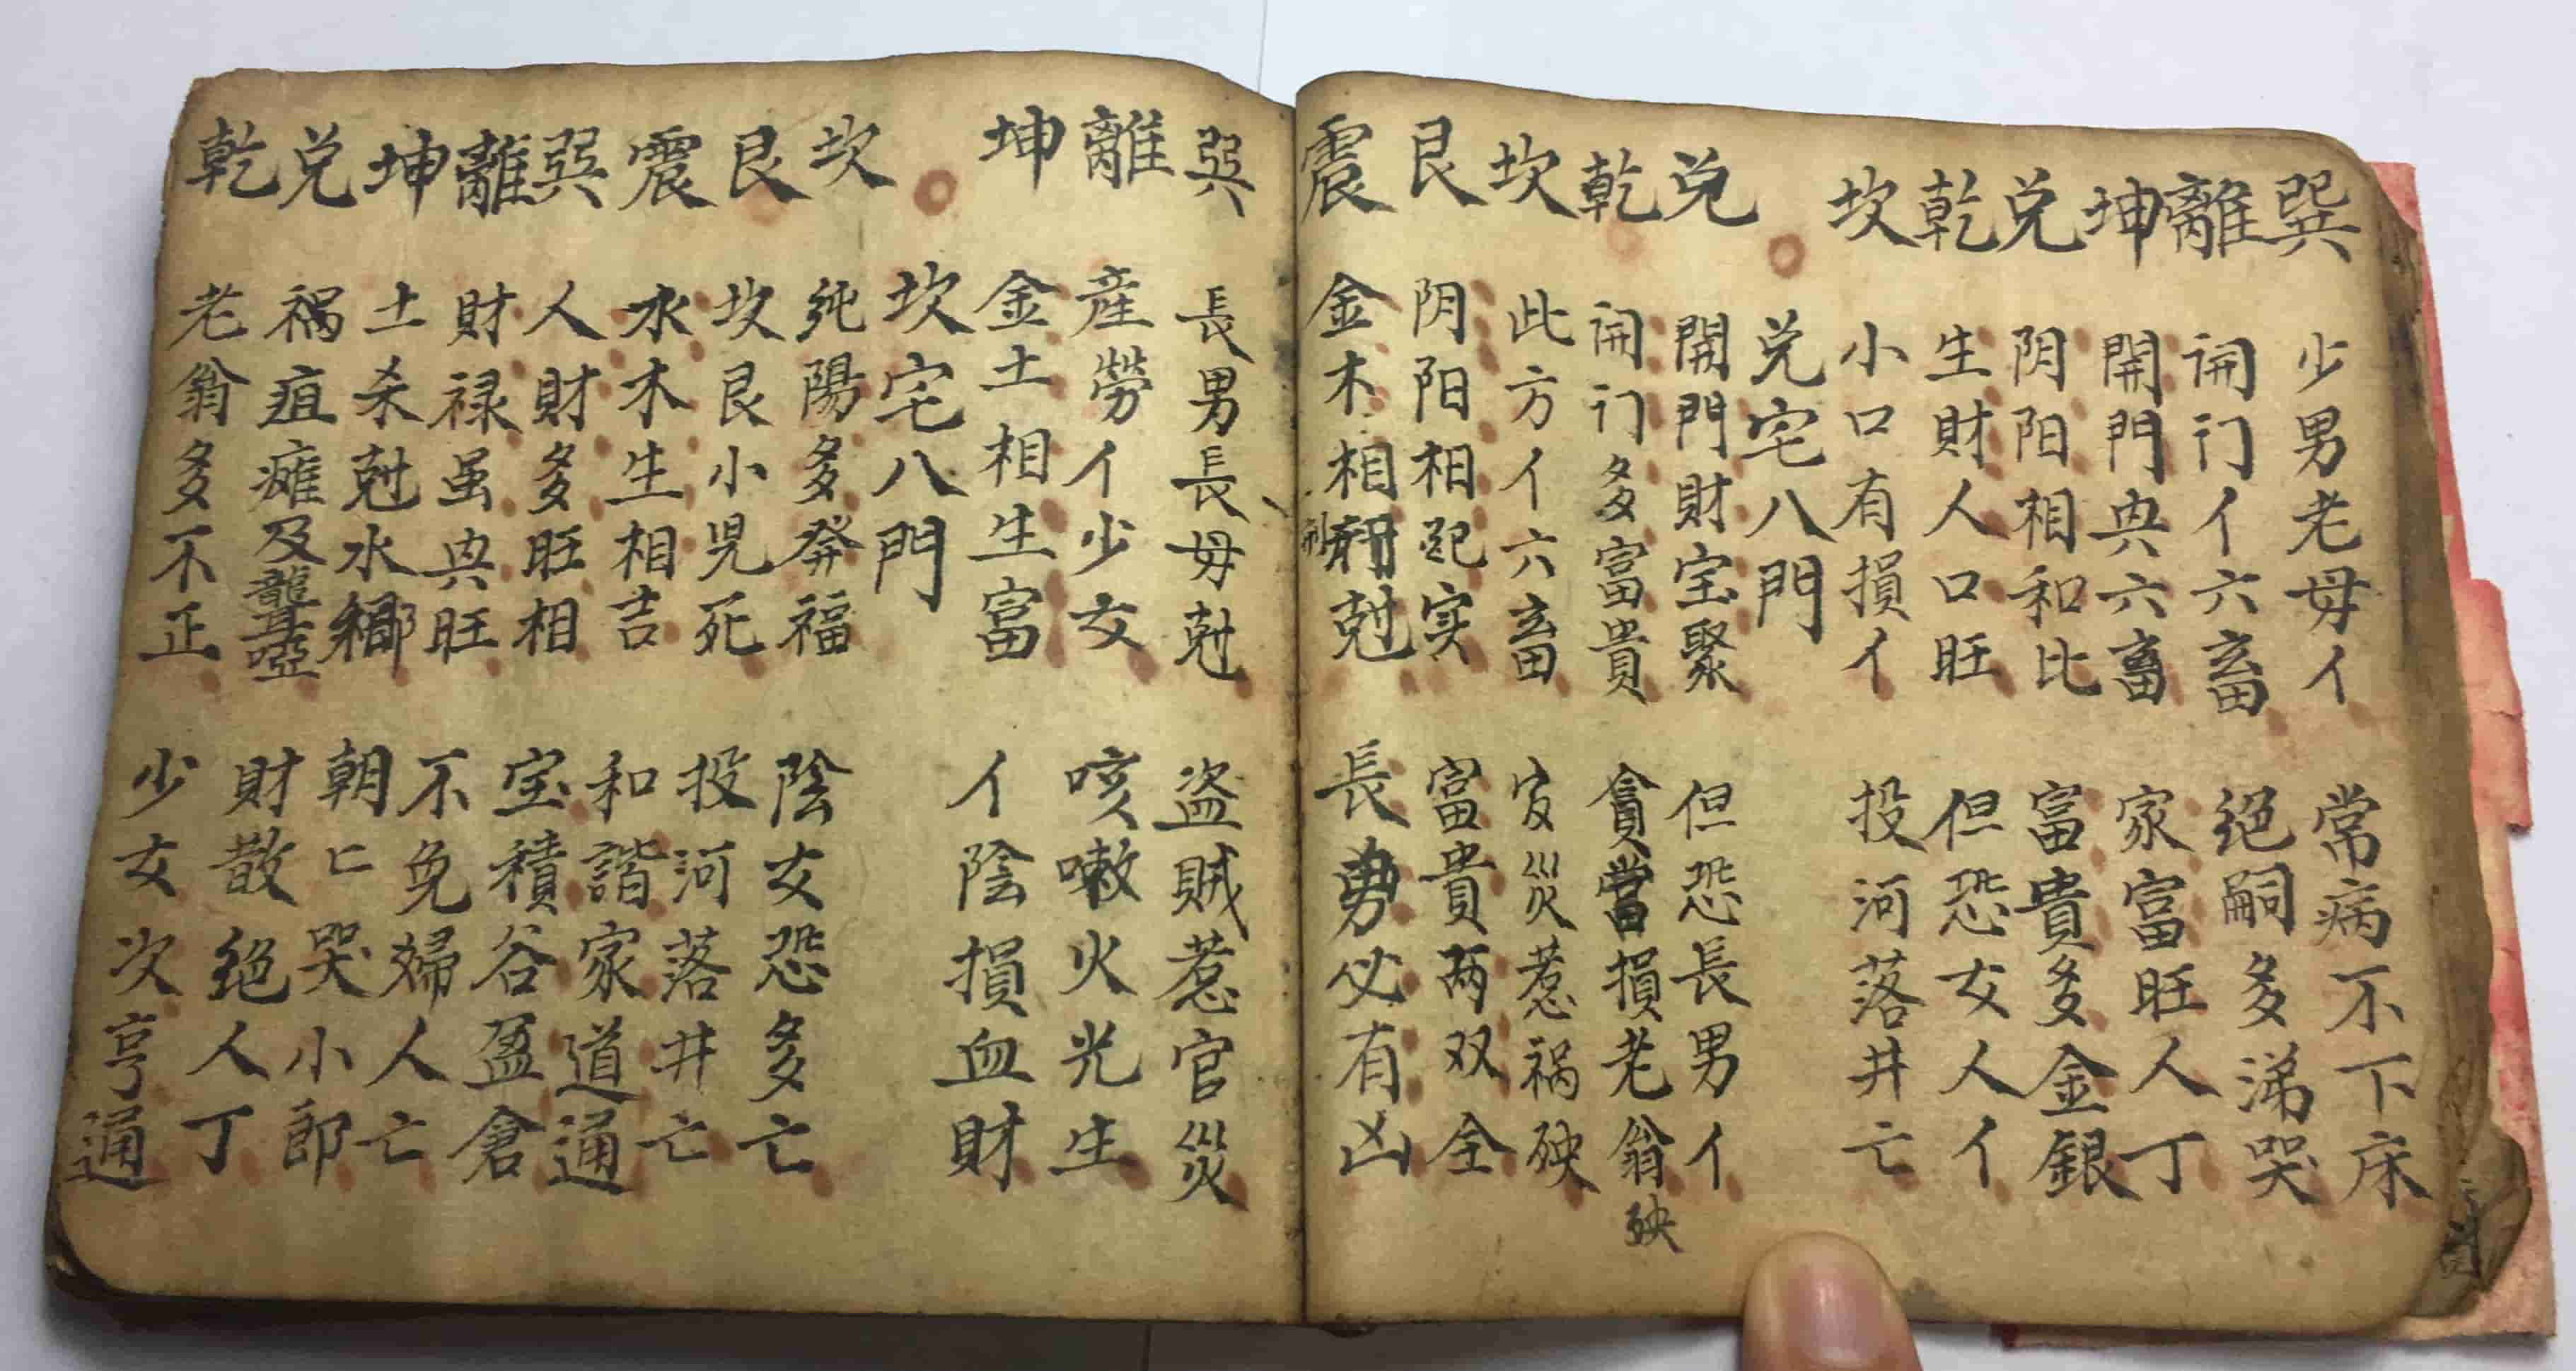 巽 少男老母亻 常病不下床
離 開门亻六畜 绝嗣多涕哭
坤 開門典六畜 家富旺人丁
兑 阴阳相和比 富貴多金銀
乾 生財人口旺 但恐女人亻
坎 小口有損亻 投河落井亡
兑宅八門
兑 開門財宝聚 但恐長男亻
乾 開门多富貴 貪當損老翁殃
坎 此方亻六畜 災惹祸殃
艮 阴阳相配实 富貴两双全
震 金木相刑尅 長男必有凶
巽 長男長毋尅 盗賊惹官災
離 産勞亻少女 咳嗽火光生
坤 金土相生富 亻陰損血財
坎宅八門
坎 純陽多發福 陰女恐多亡
艮 坎艮小児死 投河落井亡
震 水木生相吉 和諧家道通
巽 人財多旺相 宝積谷盈倉
離 財禄虽典旺 不免婦人亡
坤 土杀尅水鄉 朝匕哭小郎
兑 祸疽瘫及聾啞 財散绝人丁
乾 老翁多不正 少女次亨通